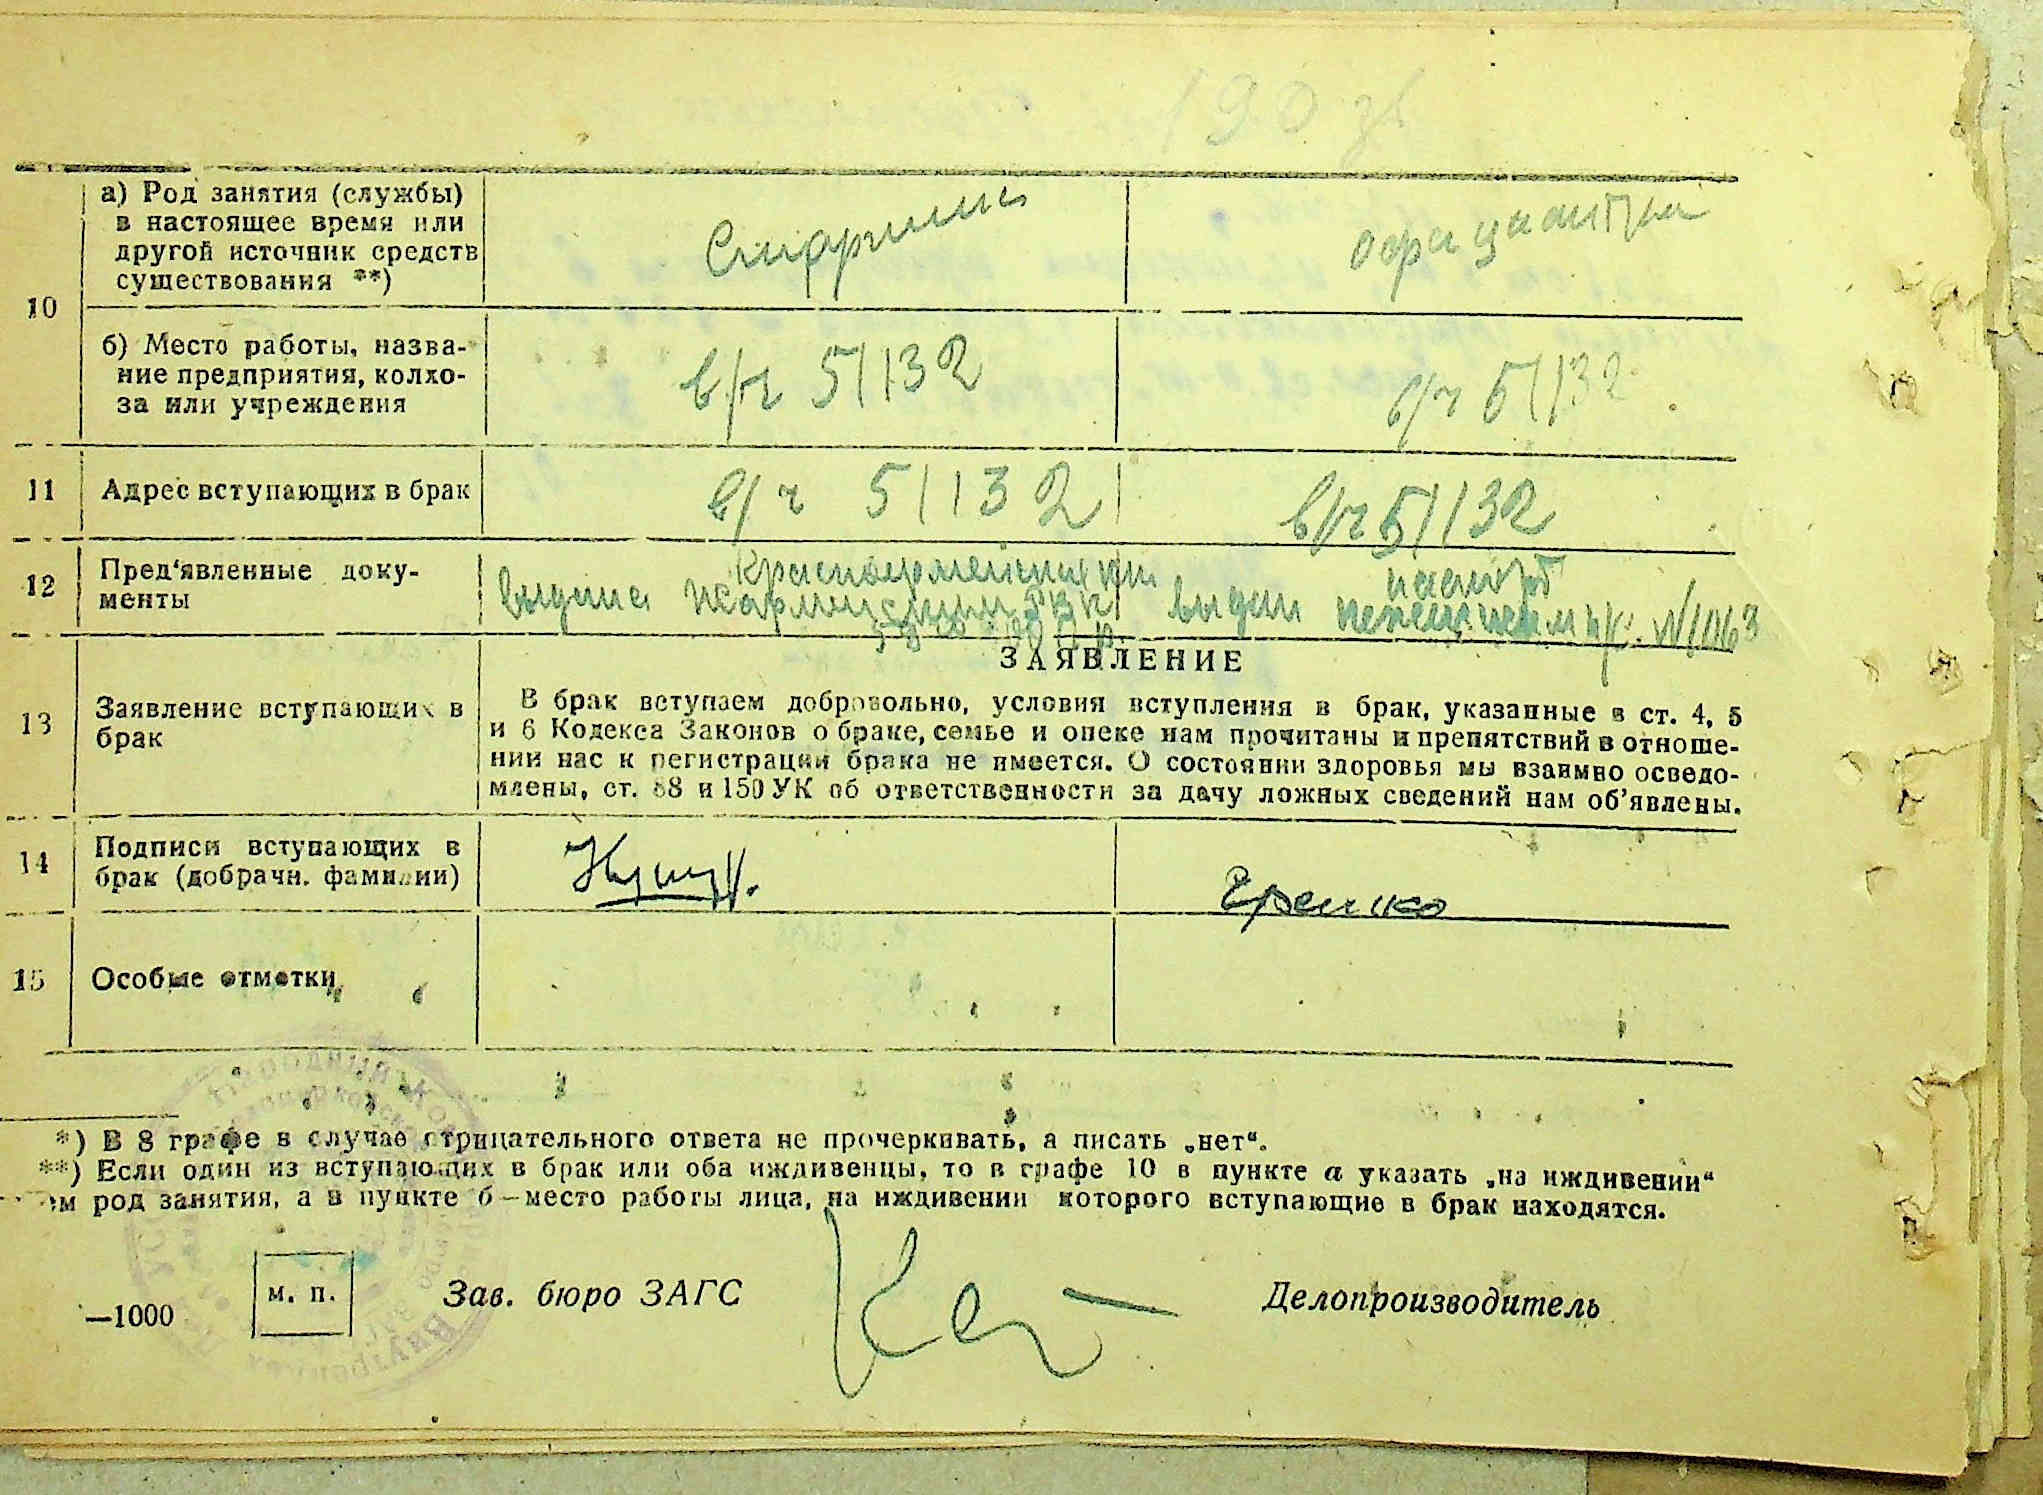 190 зв
10
а) Род занятия (службы)
в настоящее время или
другой источник средств
существования **)
официантка
б) Место работы, назва-
ние предприятия, колхо-
за или учреждения
в/ч 51132
в/ч 51132
11
Адрес вступающих в брак
в/ч 51132
в/ч 51132
12
Пред‘явленные доку-
менты
Красноармейская
выдана
паспорт
выдан
№ 1063
13
Заявление вступающих в
брак
ЗАЯВЛЕНИЕ
В брак вступаем добровольно, условия вступления в брак, указанные в ст. 4, 5
и 6 Кодекса Законов о браке, семье и опеке нам прочитаны и препятствий в отноше-
нии нас к регистрации брака не имеется. О состоянии здоровья мы взаимно осведо-
млены, ст. 88 и 150 УК об ответственности за дачу ложных сведений нам об’явлены.
14
Подписи вступающих в
брак (добрачн. фамилии)
Грешко
15
Особые отметки
*) В 8 графе в случае отрицательного ответа не прочеркивать, а писать „нет“.
**) Если один из вступающих в брак или оба иждивенцы, то в графе 10 в пункте а указать „на иждивении“
род занятия, а в пункте б—место работы лица, на иждивении которого вступающие в брак находятся.
—1000
м. п.
Зав. бюро ЗАГС
Делопроизводитель